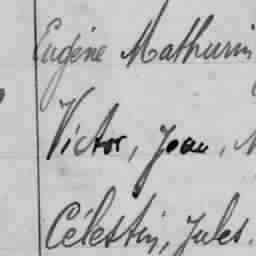 Eugène Mathurin
Victor, Jean,
Célestin, Jules.